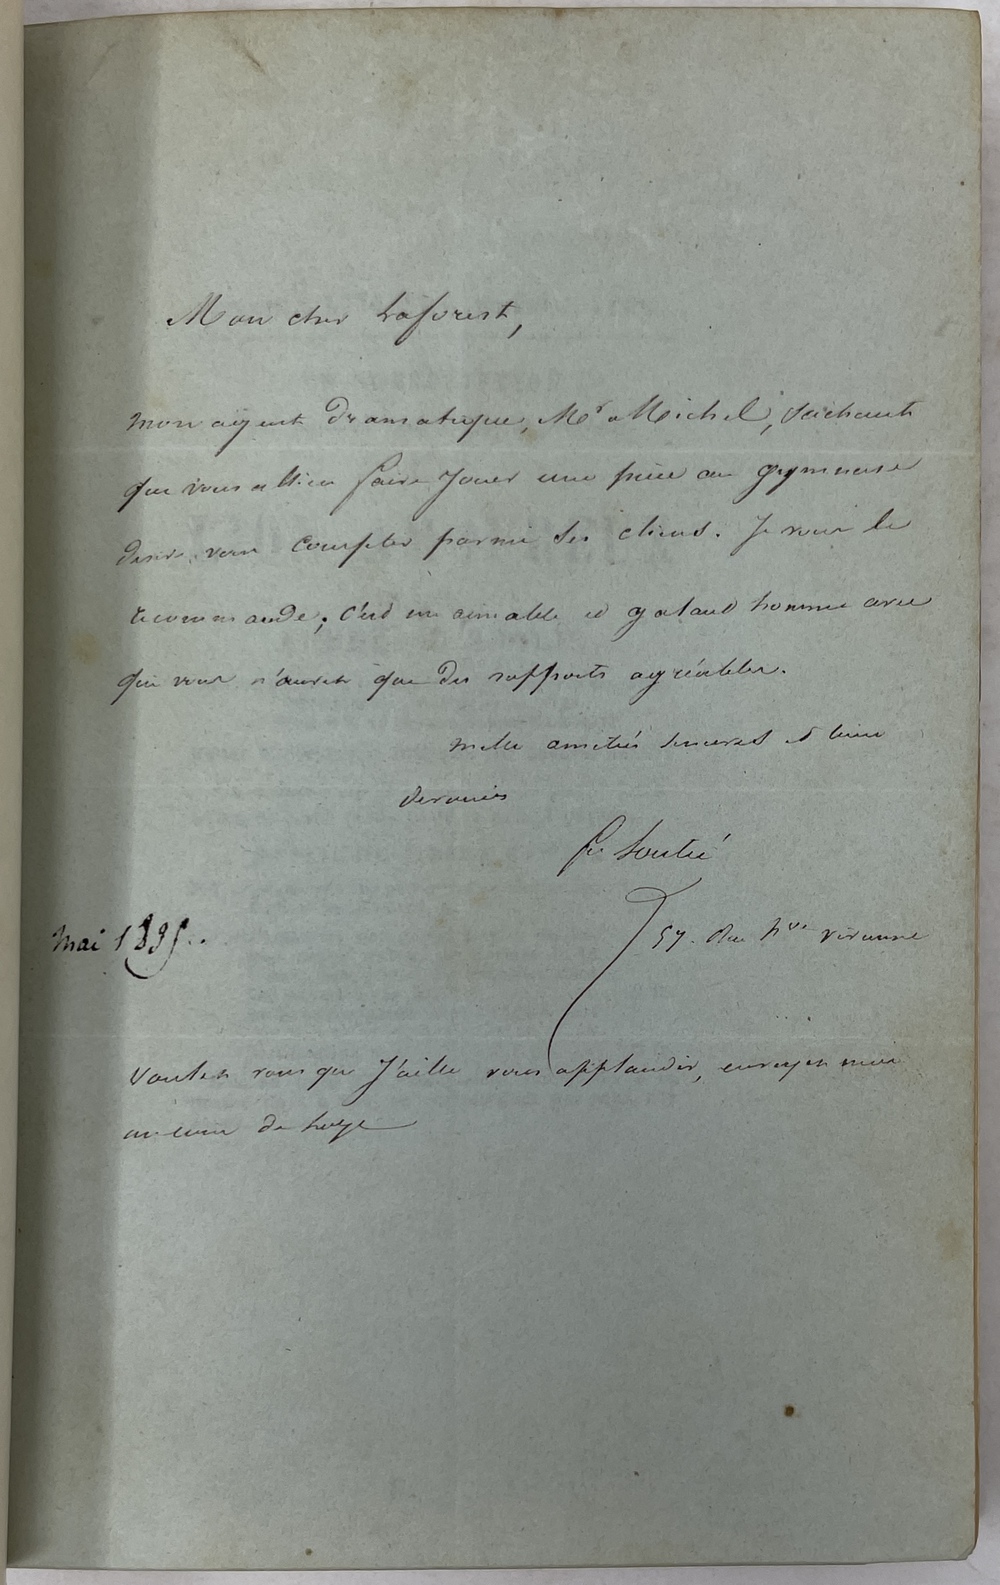 Mon cher Laforest,
mon agent dramatique, Mr Michel, sachant
que vous alliez faire jouer une pièce au gymnase
desire vous compter parmi ses cliens. Je vous le
recommande; c'est un aimable et galant homme avec
qui vous n'aurez que des rapports agréables.
mille amitiés sinceres et bien
devouées
fr Soulié
57. Rue Nve vivienne
Mai 183
Voulez vous que J'aille vous applaudir, envoyez moi
un coin de loge